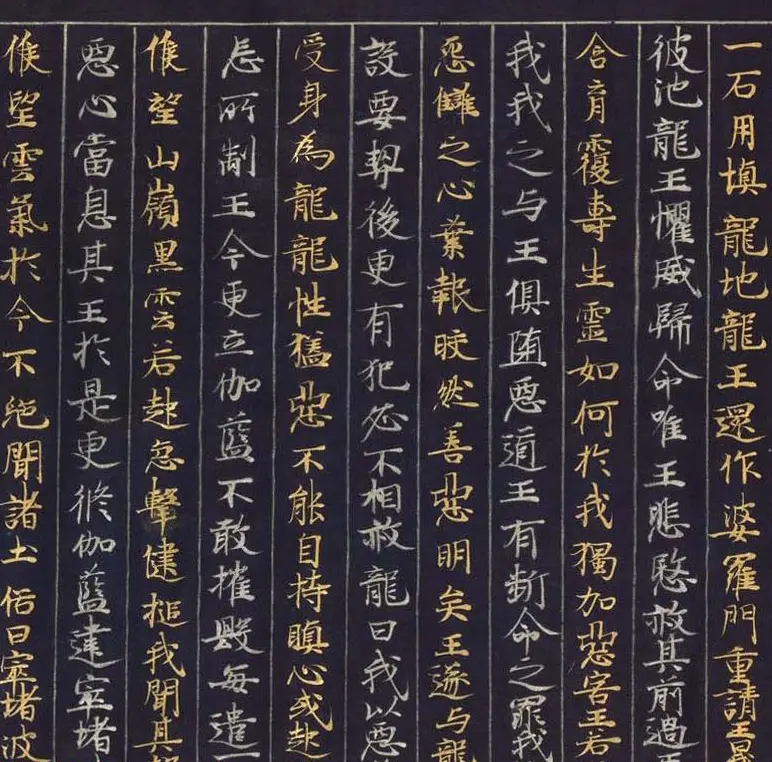 一石用填龍池龍王還作婆羅門重請王曰
彼池龍王懼威歸命唯王悲愍赦其前過王
含育覆壽生靈如何於我獨加惡害王若
我我之与王俱墮惡道王有斷命之罪我
惡讎之心業報皎然善惡明矣王遂与龍
設要契後更有犯必不相赦龍曰我以惡
受身為龍龍性猛惡不能自持瞋心或起
忘所制王今更立伽藍不敢摧毀每遣一
候望山嶺黑雲若起急擊揵槌我聞其
惡心當息其王於是更修伽藍建窣堵
候望雲氣於今不絕聞諸土俗曰窣堵波